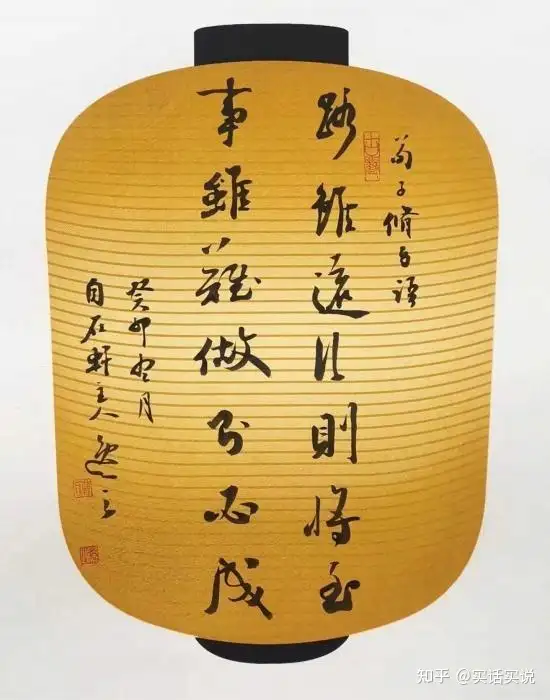 荀子脩身語
路雖遠行則將至
事雖難做則必成
癸卯月
自石軒主人
知乎 @实话实说